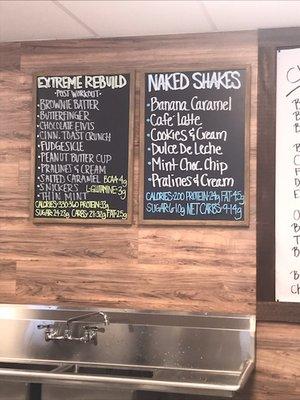 EXTREME REBUILD
·POST WORKOUT·
·BROWNIE BATTER
·BUTTERFINGER
·CHOCOLATE ELVIS
·CINN. TOAST CRUNCH
·FUDGESICLE
·PEANUT BUTTER CUP
·PRALINES & CREAM
·SALTED CARAMEL BCAA 4g
·SNICKERS L-GLUTAMINE-3g
·THIN MINT
PROTEIN-33g
SUGAR-24-28g
NAKED SHAKES
·Banana Caramel
·Cafe Latte
·Cookies & Cream
·Dulce De Leche
·Mint Choc. Chip
·Pralines & Cream
CALORIES-200 PROTEIN-24g FAT-4.5g
SUGAR-6-10g NET CARBS-9-14g